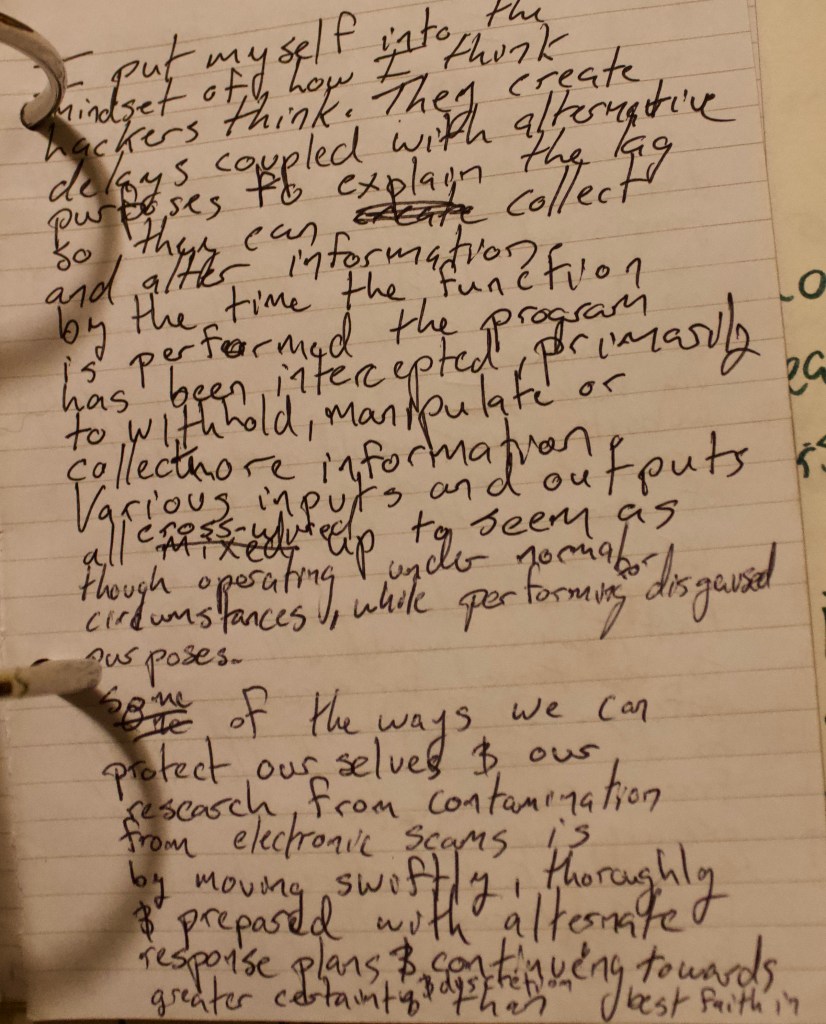 I put myself into the
mindset of how I think
hackers think. They create
delays coupled with alternative
purposes to explain the lag
so they can create collect
and alter information.
by the time the function
is performed the program
has been intercepted, primarily
to withhold, manipulate or
collect more information.
Various inputs and outputs
all mixed cross-wired up to seem as
though operating under normal
circumstances, while performing disgaused
purposes.
Some of the ways we can
protect our selves & our
research from contamination
from electronic scams is
by moving swiftly, thoroughly
& prepared with alternate
response plans & continueing towards
greater certainty & dyscretion than best faith in